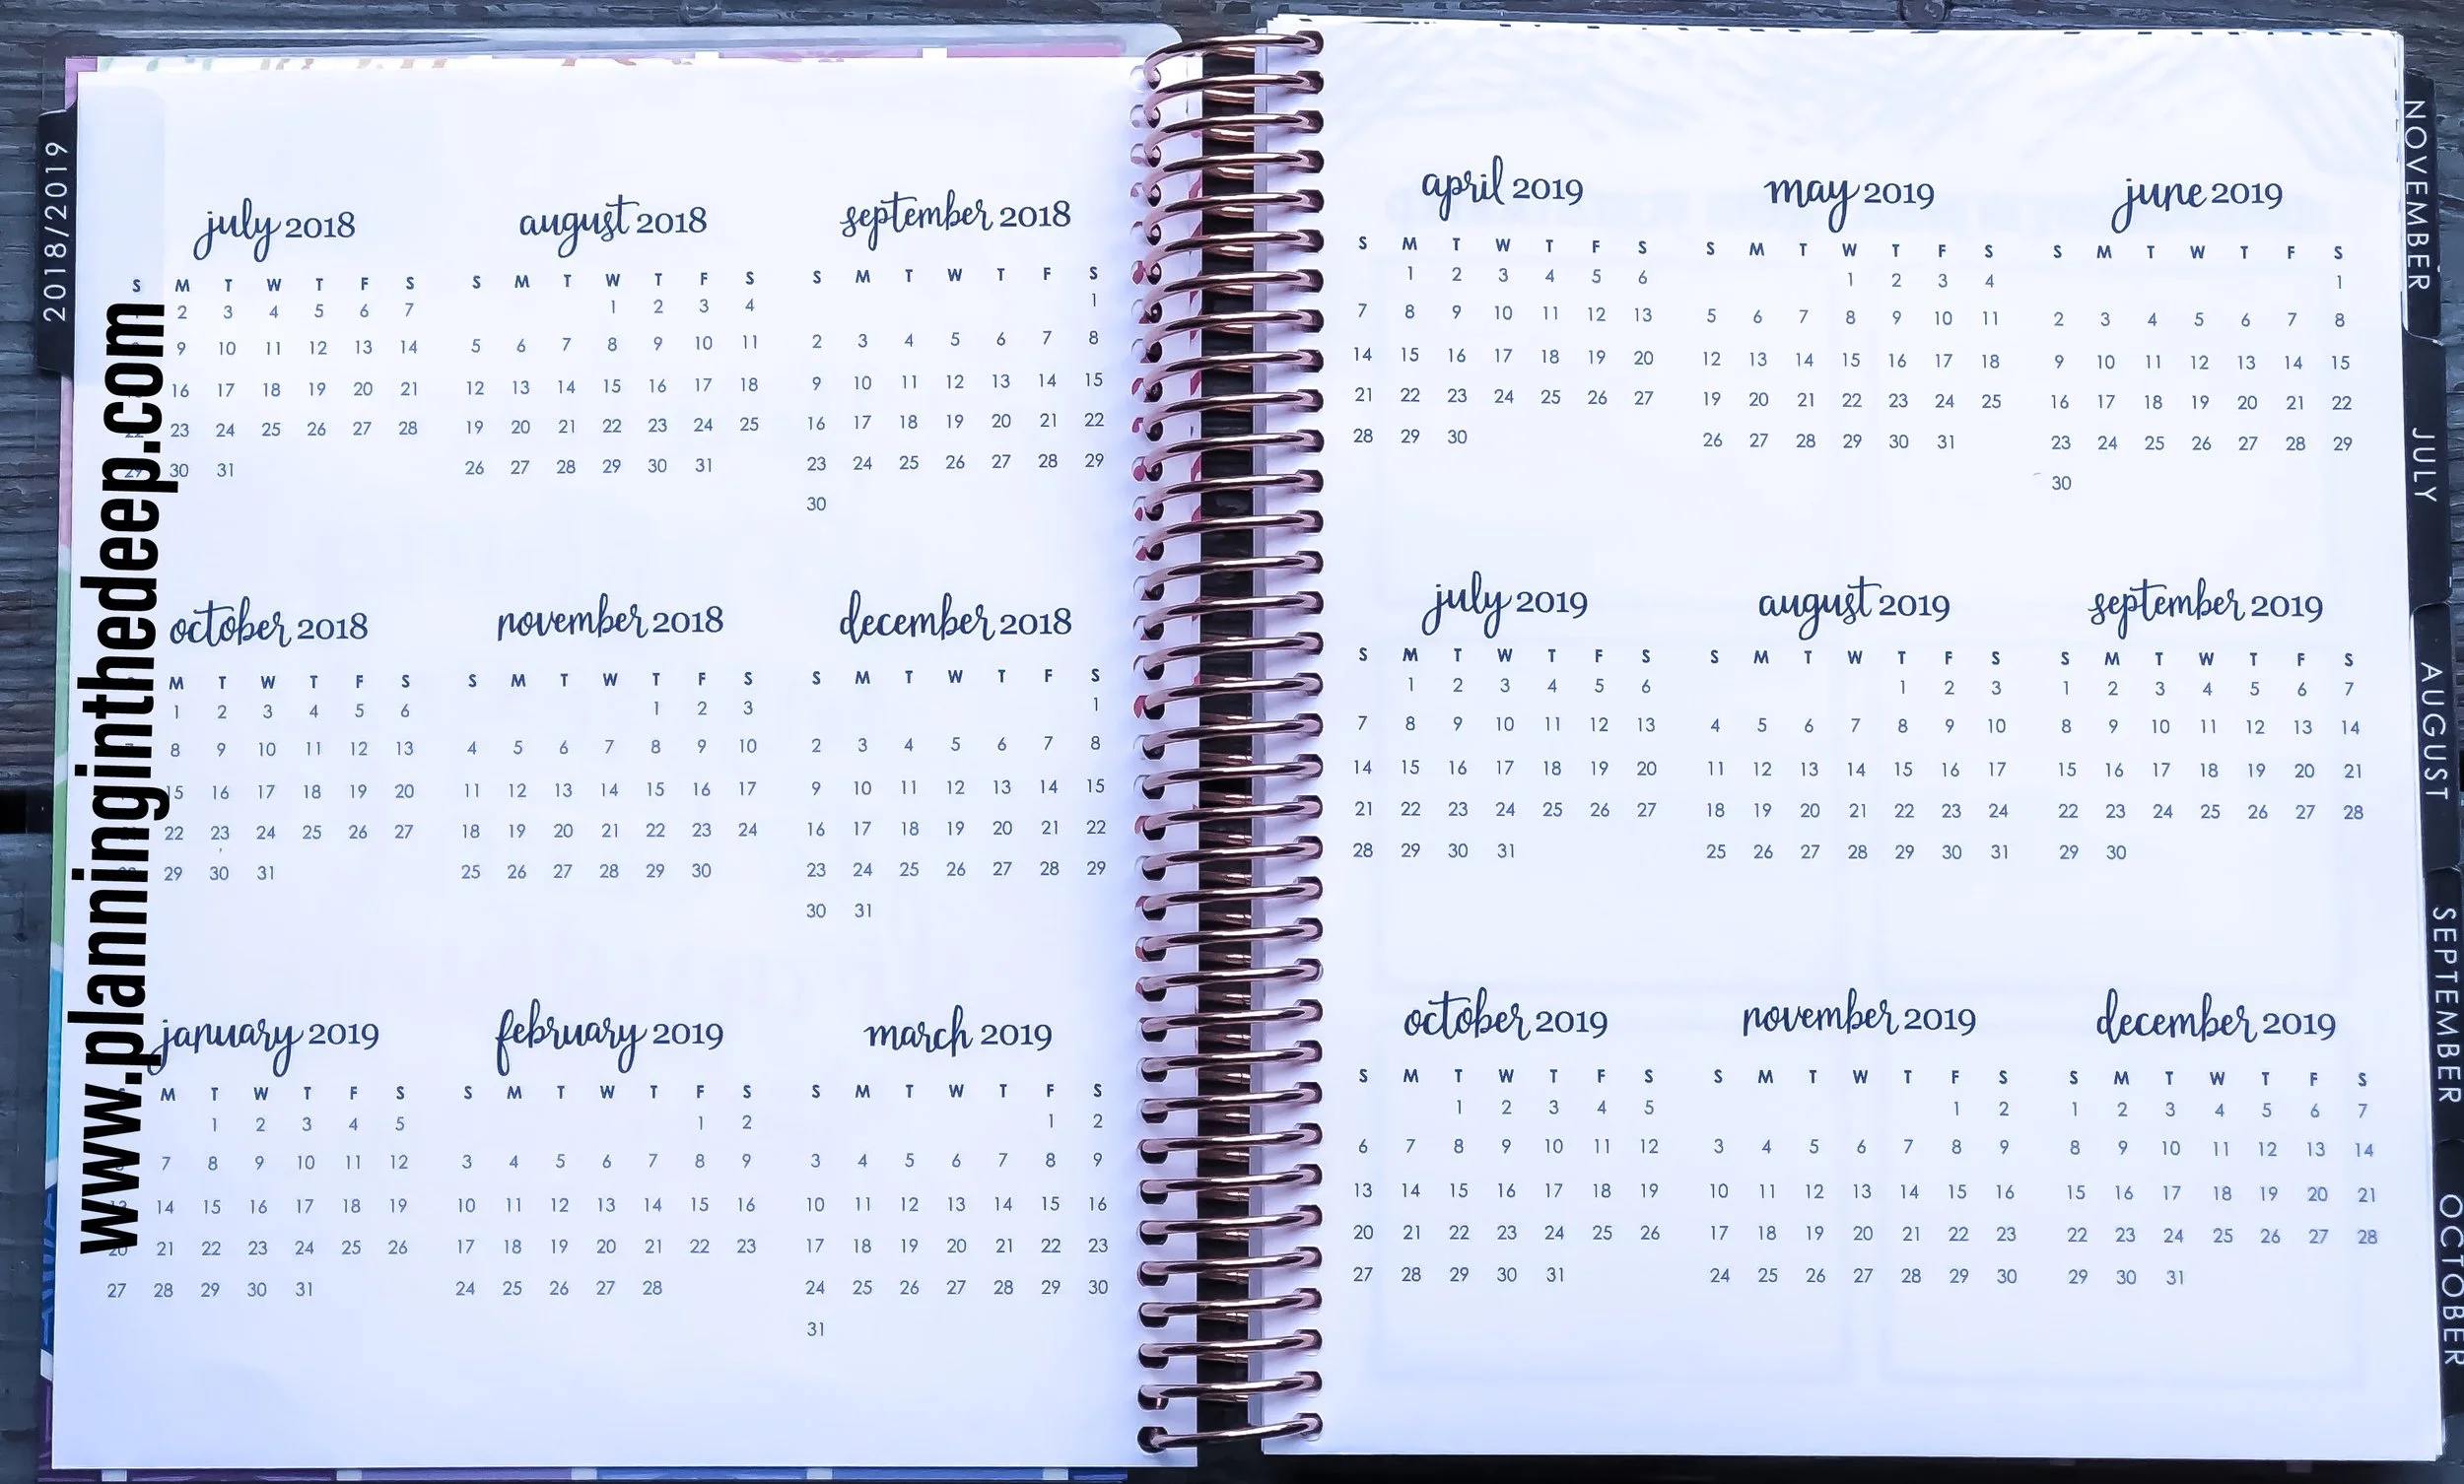 2018/2019
www.planninginthedeep.com
july 2018
S M T W T F S
2 3 4 5 6 7
9 10 11 12 13 14
16 17 18 19 20 21
22 23 24 25 26 27 28
29 30 31
august 2018
S M T W T F S
1 2 3 4
5 6 7 8 9 10 11
12 13 14 15 16 17 18
19 20 21 22 23 24 25
26 27 28 29 30 31
september 2018
S M T W T F S
1
2 3 4 5 6 7 8
9 10 11 12 13 14 15
16 17 18 19 20 21 22
23 24 25 26 27 28 29
30
october 2018
M T W T F S
1 2 3 4 5 6
8 9 10 11 12 13
15 16 17 18 19 20
22 23 24 25 26 27
29 30 31
november 2018
S M T W T F S
1 2 3
4 5 6 7 8 9 10
11 12 13 14 15 16 17
18 19 20 21 22 23 24
25 26 27 28 29 30
december 2018
S M T W T F S
1
2 3 4 5 6 7 8
9 10 11 12 13 14 15
16 17 18 19 20 21 22
23 24 25 26 27 28 29
30 31
january 2019
M T W T F S
1 2 3 4 5
7 8 9 10 11 12
13 14 15 16 17 18 19
20 21 22 23 24 25 26
27 28 29 30 31
february 2019
S M T W T F S
1 2
3 4 5 6 7 8 9
10 11 12 13 14 15 16
17 18 19 20 21 22 23
24 25 26 27 28
march 2019
S M T W T F S
1 2
3 4 5 6 7 8 9
10 11 12 13 14 15 16
17 18 19 20 21 22 23
24 25 26 27 28 29 30
31
april 2019
S M T W T F S
1 2 3 4 5 6
7 8 9 10 11 12 13
14 15 16 17 18 19 20
21 22 23 24 25 26 27
28 29 30
may 2019
S M T W T F S
1 2 3 4
5 6 7 8 9 10 11
12 13 14 15 16 17 18
19 20 21 22 23 24 25
26 27 28 29 30 31
june 2019
S M T W T F S
1
2 3 4 5 6 7 8
9 10 11 12 13 14 15
16 17 18 19 20 21 22
23 24 25 26 27 28 29
30
july 2019
S M T W T F S
1 2 3 4 5 6
7 8 9 10 11 12 13
14 15 16 17 18 19 20
21 22 23 24 25 26 27
28 29 30 31
august 2019
S M T W T F S
1 2 3
4 5 6 7 8 9 10
11 12 13 14 15 16 17
18 19 20 21 22 23 24
25 26 27 28 29 30 31
september 2019
S M T W T F S
1 2 3 4 5 6 7
8 9 10 11 12 13 14
15 16 17 18 19 20 21
22 23 24 25 26 27 28
29 30
october 2019
S M T W T F S
1 2 3 4 5
6 7 8 9 10 11 12
13 14 15 16 17 18 19
20 21 22 23 24 25 26
27 28 29 30 31
november 2019
S M T W T F S
1 2
3 4 5 6 7 8 9
10 11 12 13 14 15 16
17 18 19 20 21 22 23
24 25 26 27 28 29 30
december 2019
S M T W T F S
1 2 3 4 5 6 7
8 9 10 11 12 13 14
15 16 17 18 19 20 21
22 23 24 25 26 27 28
29 30 31
NOVEMBER
JULY
AUGUST
SEPTEMBER
OCTOBER